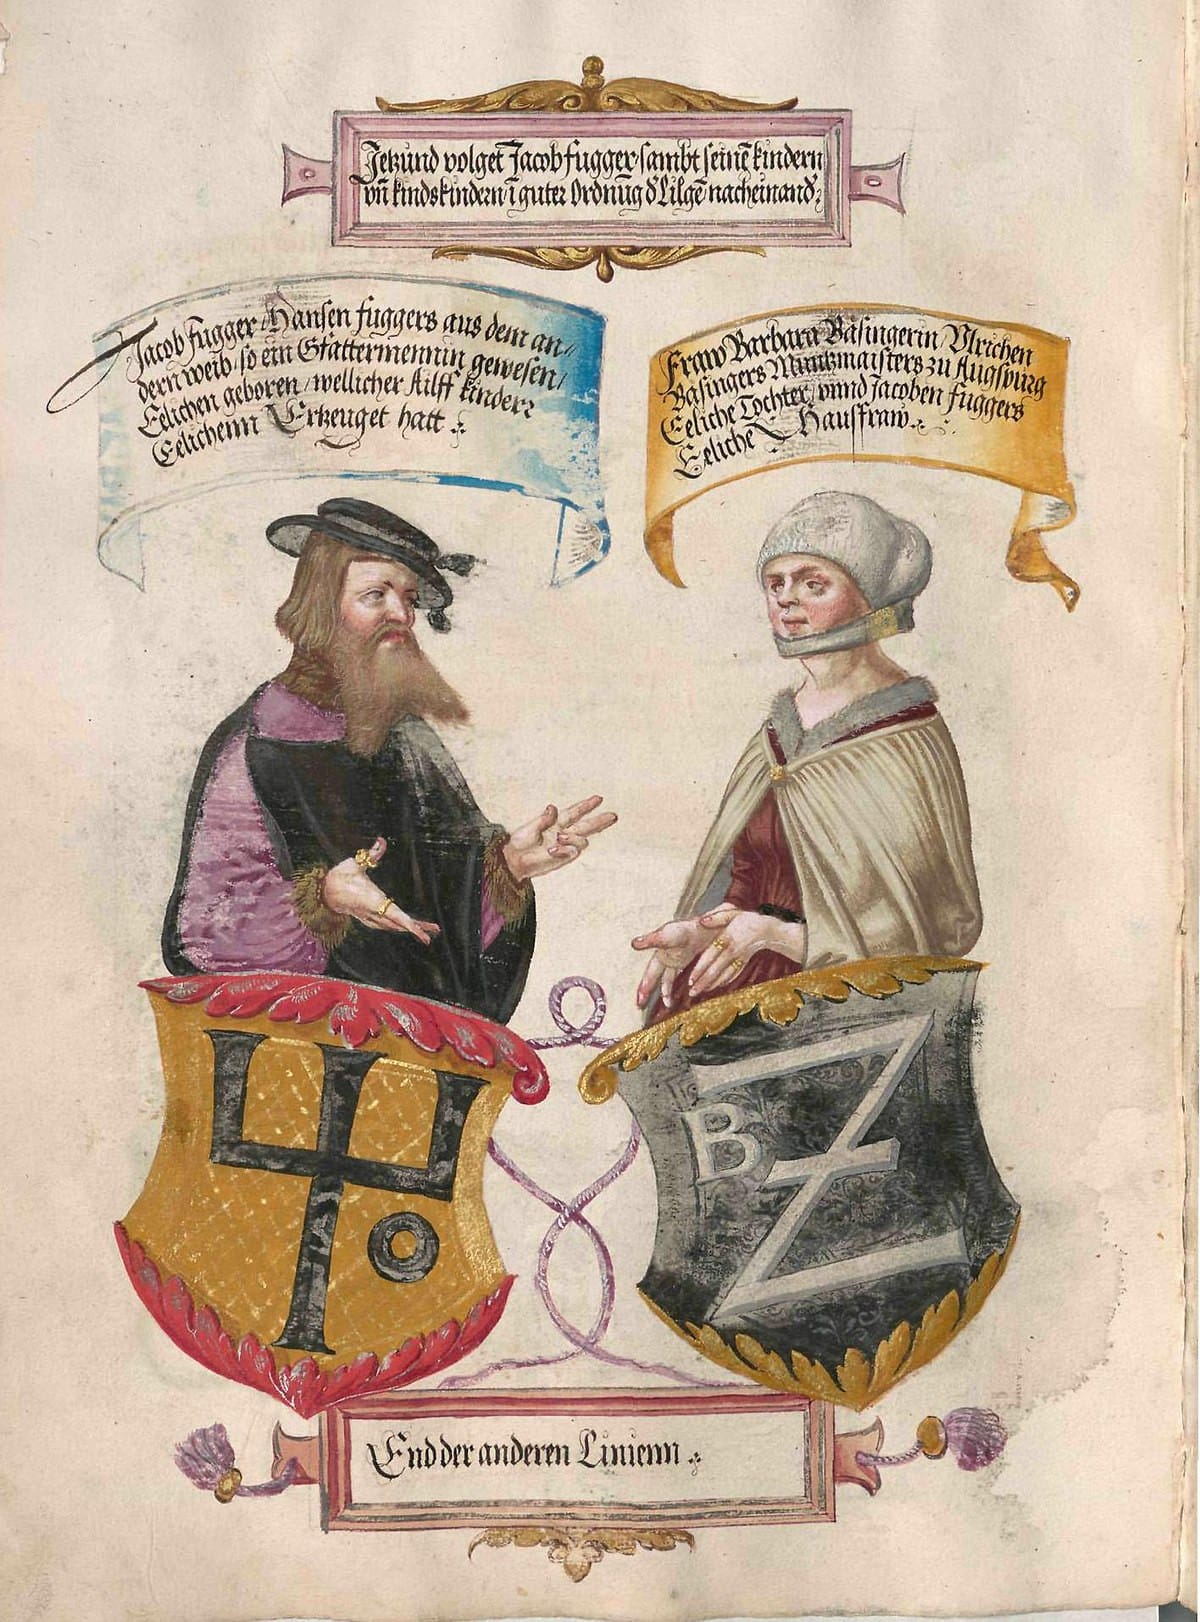 Jetzund volget Jacob fugger sambt seinē kindern
vn̄ kindskindern ī guter Ordnūg d' Lilgē nacheinand'
Jacob fugger Hansen fuggers aus dem an⸗
dern weib / so ein Gfattermennin gewesen /
Eelichen geboren / wellicher Ailff kinder
Eelichenn Ertzeuget hatt
Fraw Barbara Bäsingerin / Ulrichen
Bäsingers Müntzmaisters zu Augspurg
Eeliche Tochter / vnnd Jacoben fuggers
Eeliche Hausfraw
B
End der anderen Linienn